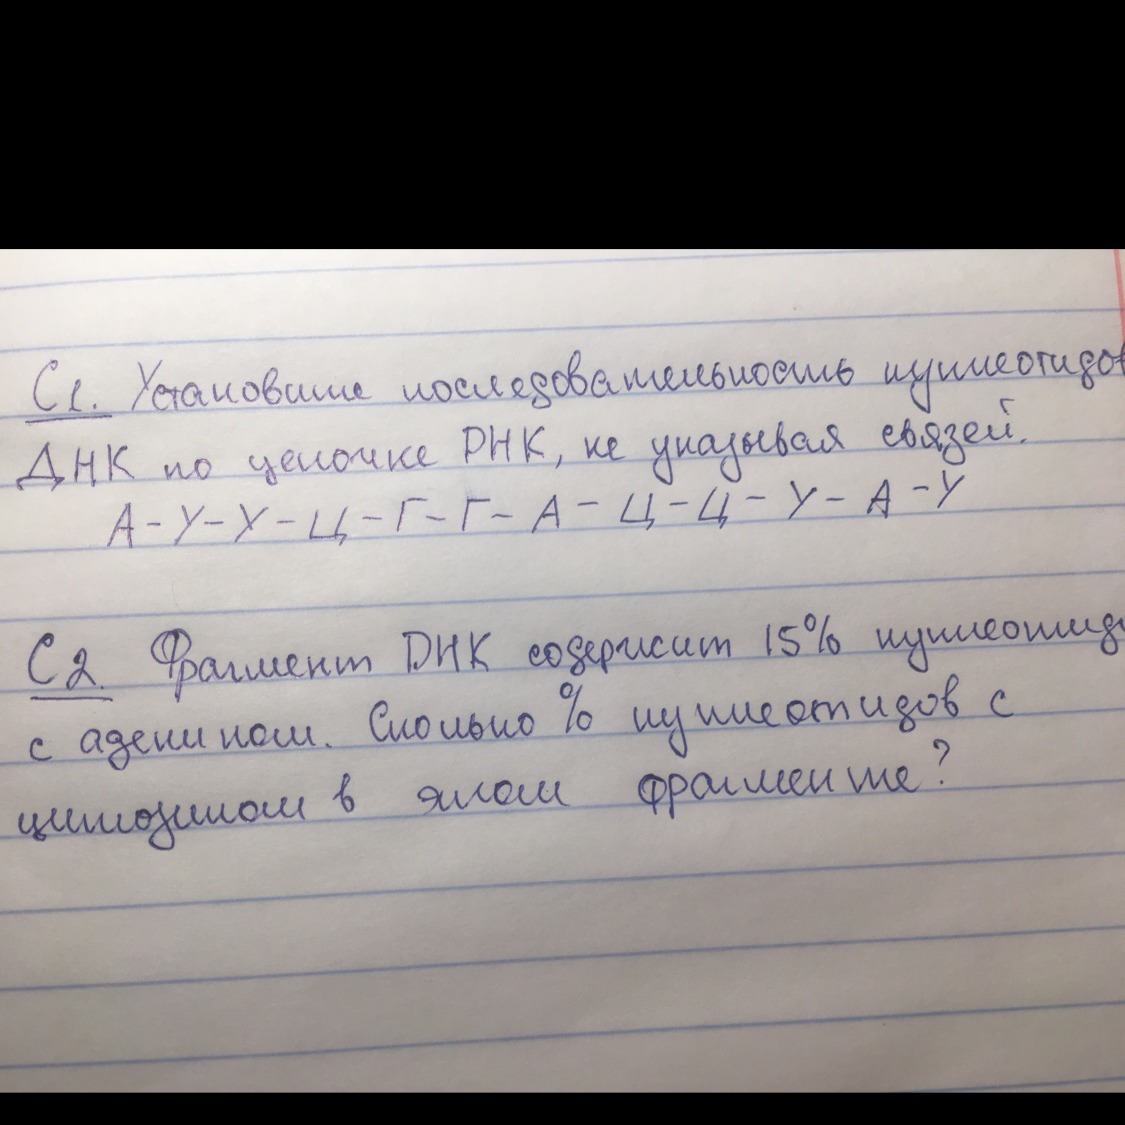 С1. Установите последовательность нуклеотидов
ДНК по цепочке РНК, не указывая связей.
А-У-У-Ц-Г-Г-А-Ц-Ц-У-А-У
С2. Фрагмент ДНК содержит 15% нуклеотидов
с аденином. Сколько % нуклеотидов с
цитозином в этом фрагменте?